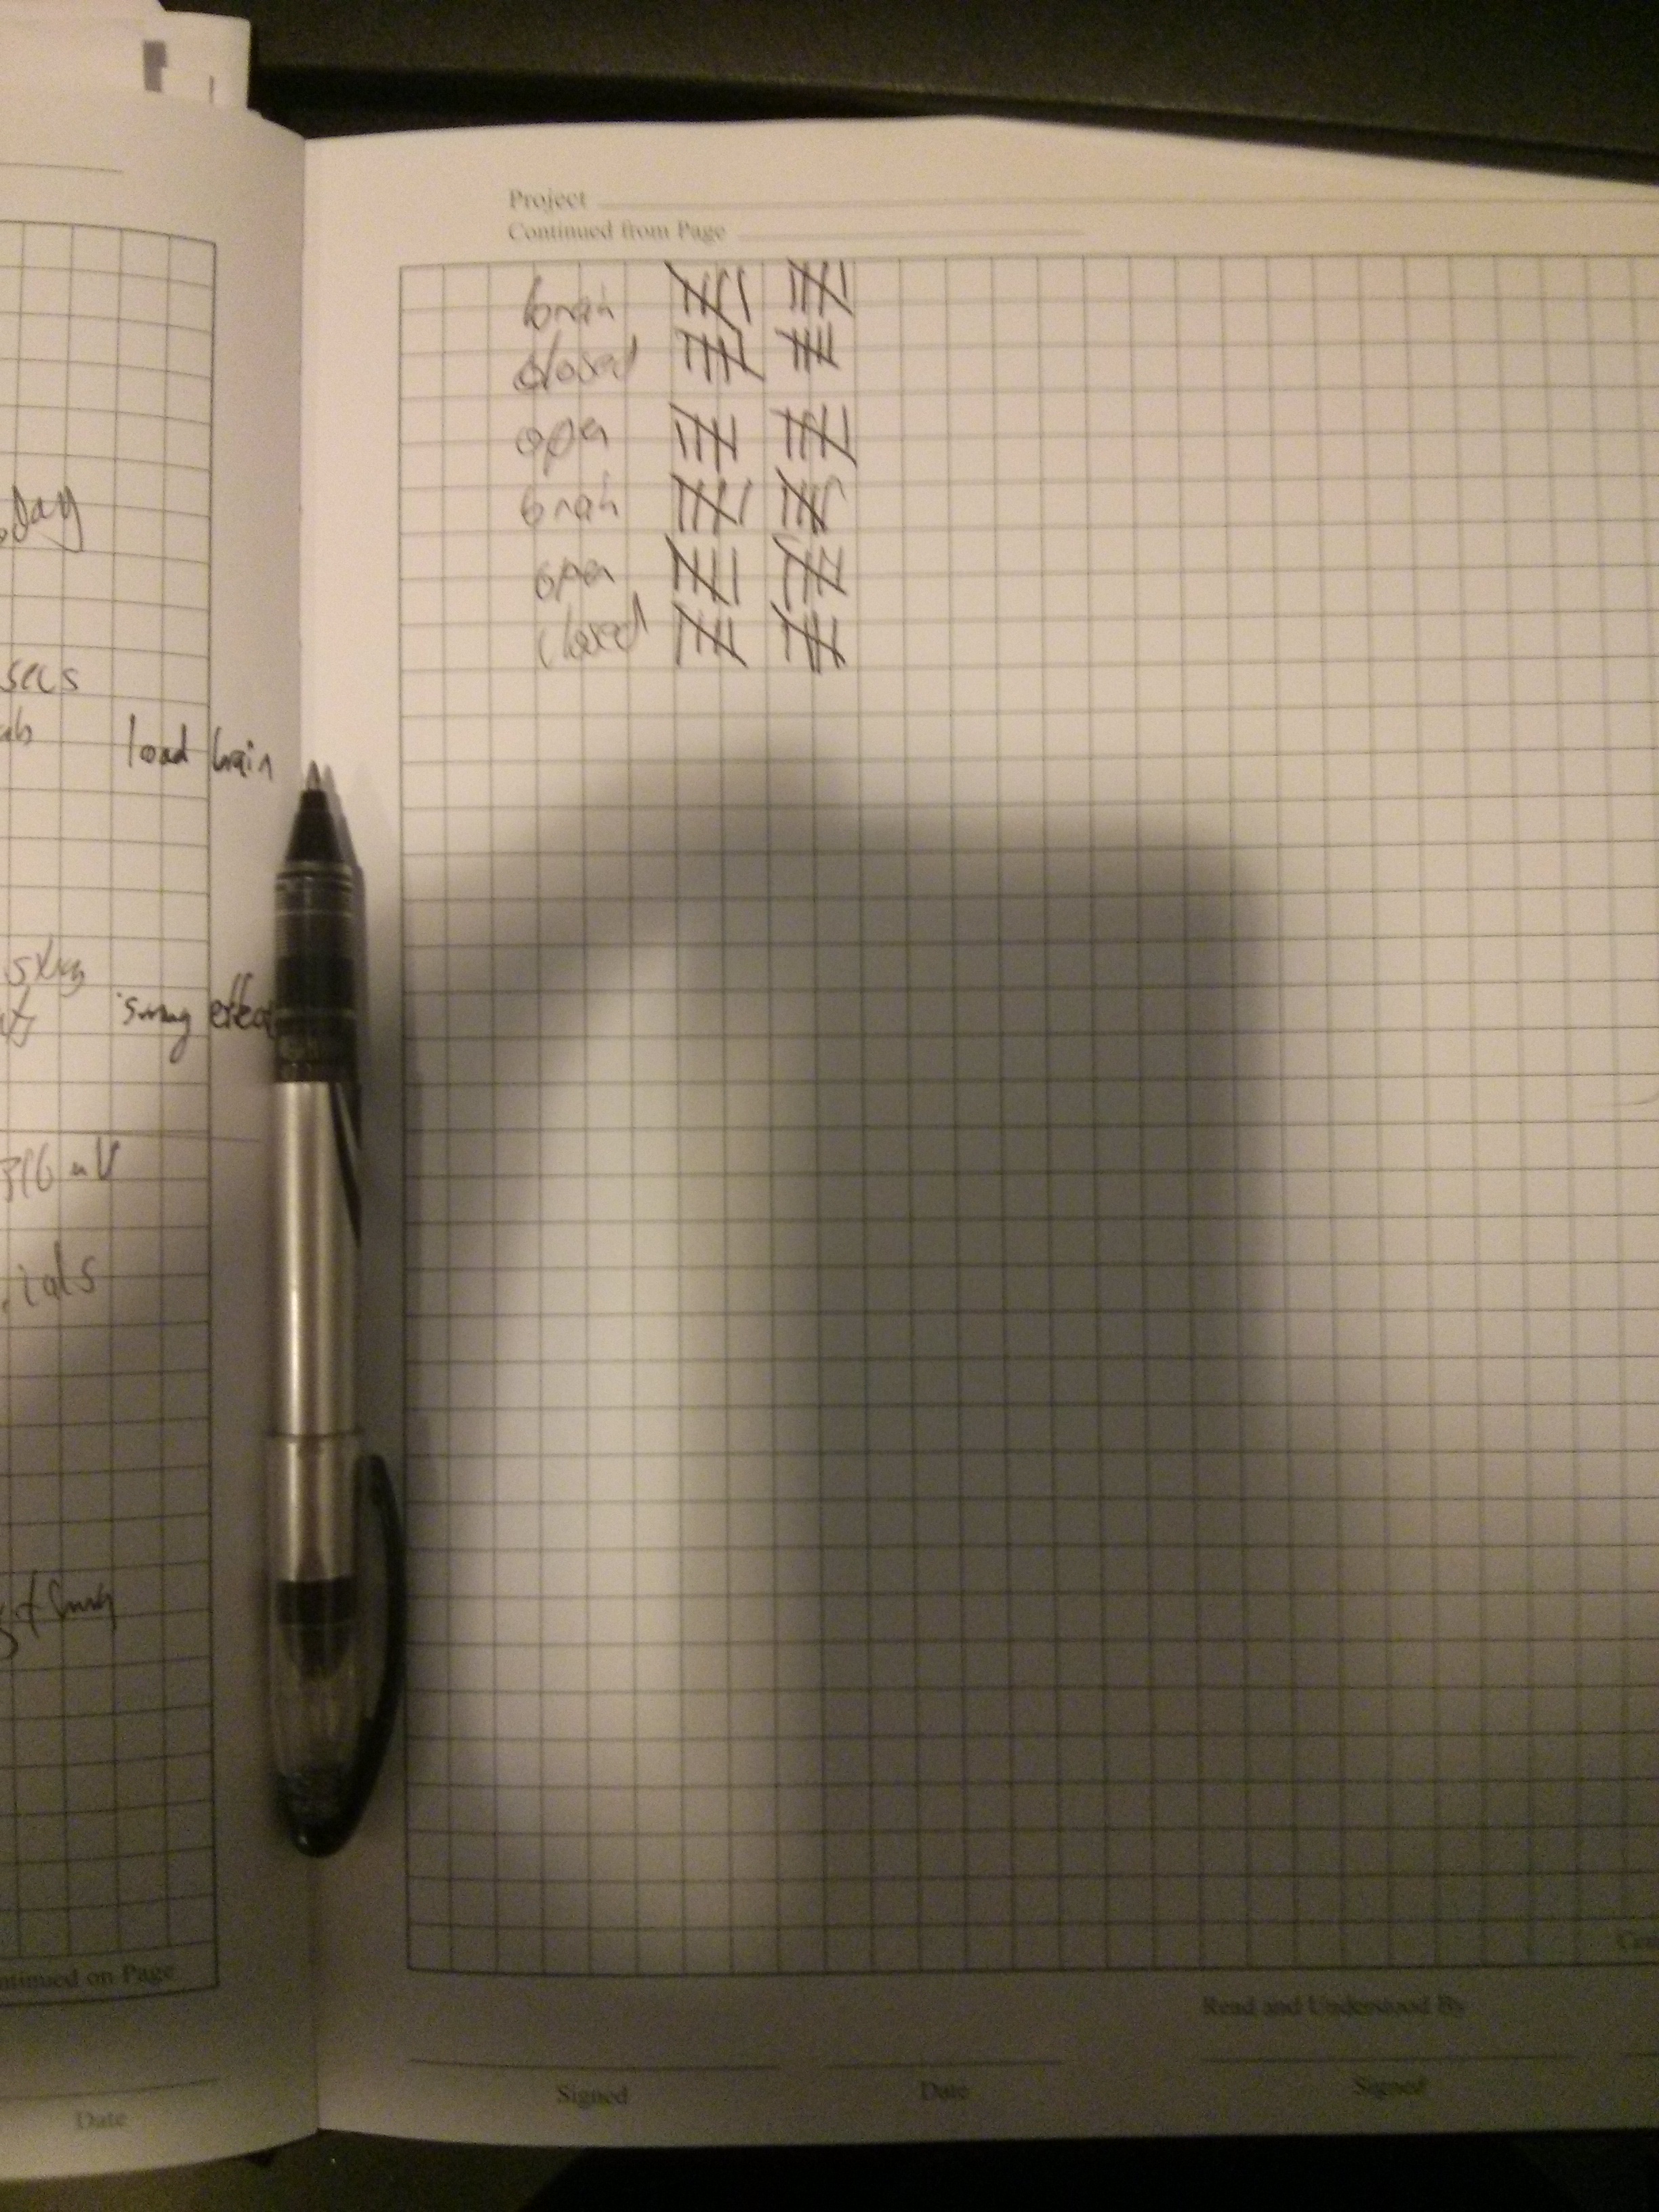 secs
load brain
strong effect
ntinued on Page
Date
Project
Continued from Page
brain
closed
open
brain
open
closed
Read and Understood By
Signed Date Signed